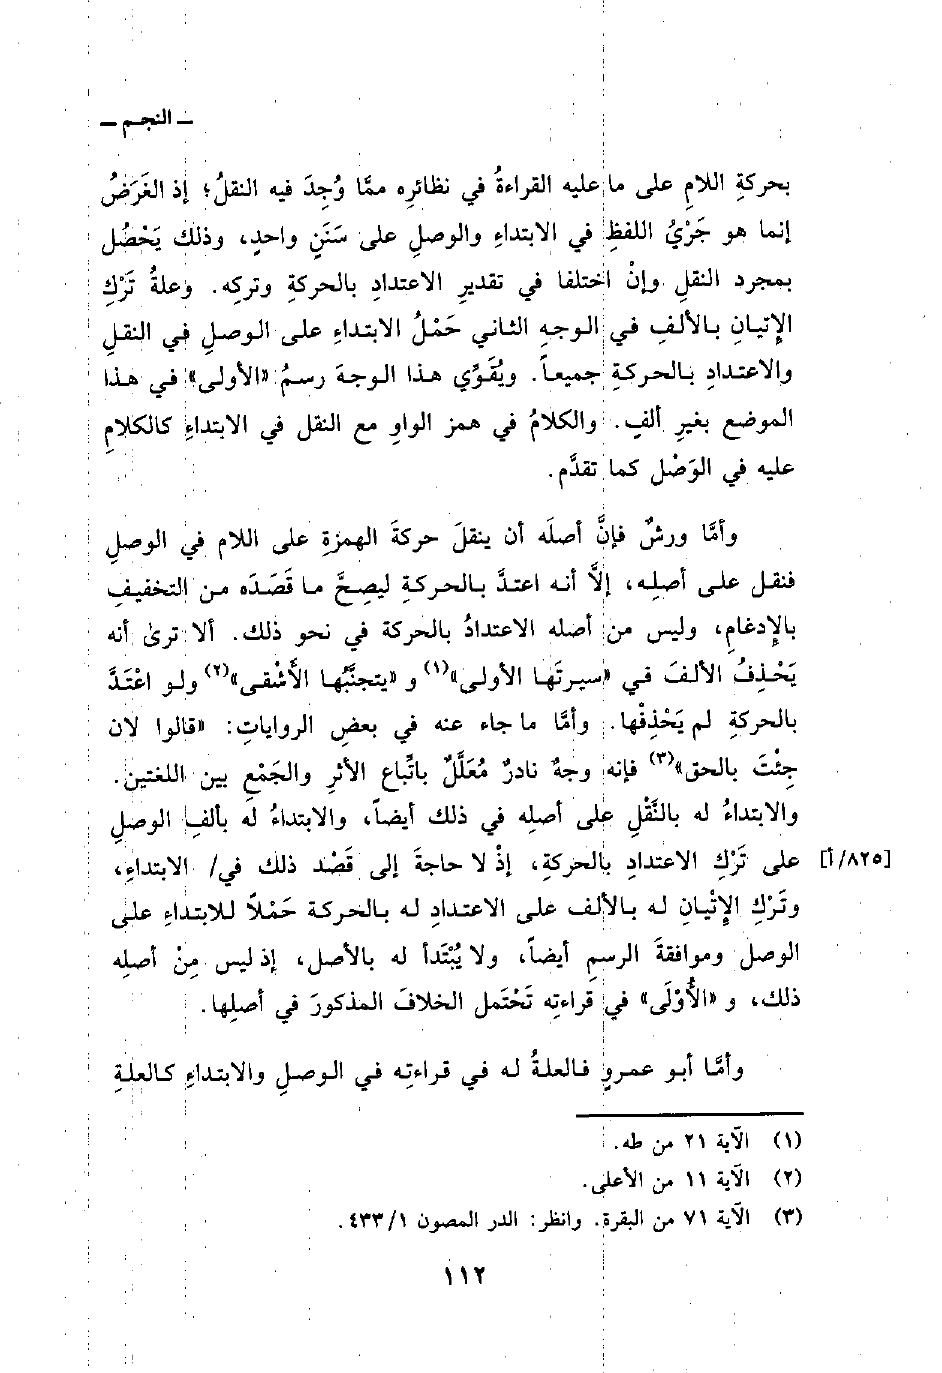 ـ النجـم ـ
بحركةِ اللامِ على ما عليه القراءةُ في نظائرِه ممَّا وُجِدَ فيه النقلُ؛ إذ الغَرَضُ
إنما هو جَرْيُ اللفظِ في الابتداءِ والوصلِ على سَنَنٍ واحدٍ، وذلك يَحْصُل
بمجرد النقلِ وإنْ اختلفا في تقديرِ الاعتدادِ بالحركةِ وتركِه. وعلةُ تَرْكِ
الإِتيانِ بالألفِ في الوجهِ الثاني حَمْلُ الابتداءِ على الوصلِ في النقلِ
والاعتدادِ بالحركةِ جميعاً. ويُقَوِّي هذا الوجهَ رسمُ «الأولى» في هذا
الموضع بغيرِ ألفٍ. والكلامُ في همز الواوِ مع النقل في الابتداءِ كالكلامِ
عليه في الوَصْل كما تقدَّم.
وأمَّا ورشٌ فإنَّ أصلَه أن ينقلَ حركةَ الهمزةِ على اللام في الوصلِ
فنقل على أصلِه، إلَّا أنه اعتدَّ بالحركةِ ليصِحَّ ما قَصَدَه من التخفيفِ
بالإِدغامِ، وليس من أصله الاعتدادُ بالحركة في نحو ذلك. ألا ترىٰ أنه
يَحْذِفُ الألفَ في «سيرتَها الأولى»(١) و «يتجنَّبُها الأَشْقى»(٢) ولو اعْتَدَّ
بالحركةِ لم يَحْذِفْها. وأمَّا ما جاء عنه في بعضِ الرواياتِ: «قالوا لان
جِئْتَ بالحق»(٣) فإنه وجهٌ نادرٌ مُعَلَّلٌ باتِّباع الأثرِ والجَمْعِ بين اللغتين.
والابتداءُ له بالنَّقْلِ على أصلِه في ذلك أيضاً، والابتداءُ له بألفِ الوصلِ
على تَرْكِ الاعتدادِ بالحركةِ، إذْ لا حاجةَ إلى قَصْد ذلك في/ الابتداءِ، [٨٢٥/أ]
وتَرْكِ الإِتْيانِ له بالألف على الاعتدادِ له بالحركة حَمْلاً للابتداءِ على
الوصل وموافقةَ الرسمِ أيضاً، ولا يُبْتَدأ له بالأصل، إذ ليس مِنْ أصلِه
ذلك، و «الأُوْلَى» في قراءتِه تَحْتمل الخلافَ المذكورَ في أصلِها.
وأمَّا أبو عمروٍ فالعلةُ له في قراءتِه في الوصلِ والابتداءِ كالعلةِ
(١) الآية ٢١ من طه.
(٢) الآية ١١ من الأعلى.
(٣) الآية ٧١ من البقرة. وانظر: الدر المصون ١/٤٣٣.
١١٢